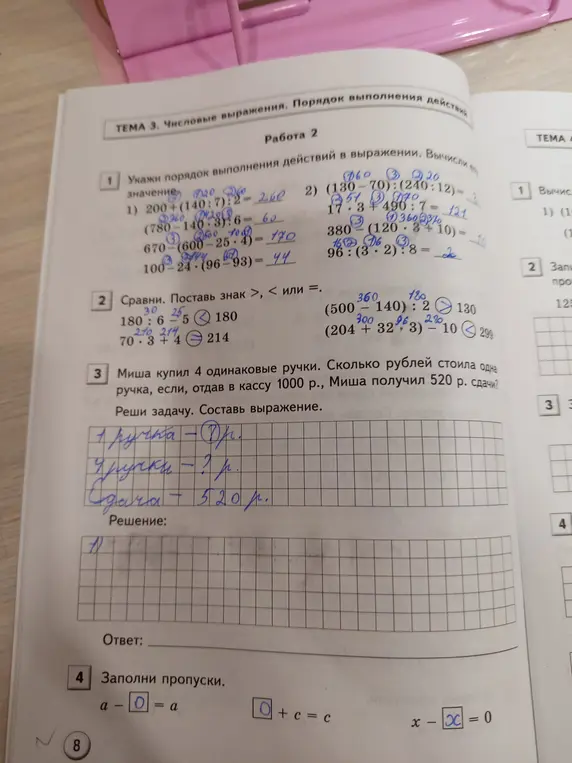 ТЕМА 3. Числовые выражения. Порядок выполнения действий
Работа 2
1 Укажи порядок выполнения действий в выражении. Вычисли
значение.
1) 200 + (140 : 7) : 2 =
(780 – 140 · 3) : 6 = 60
670 – (600 – 25 · 4) = 170
100 – 24 · (96 – 93) = 44
2) (130 – 70) : (240 : 12) =
17 · 3 + 490 : 7 = 121
380 – (120 · 3 + 10) =
96 : (3 · 2) : 8 = 2
2 Сравни. Поставь знак >, < или =.
30 25
180 : 6 – 5 < 180
210 214
70 · 3 + 4 = 214
360 180
(500 – 140) : 2 > 130
300 96 290
(204 + 32 · 3) – 10 < 299
3 Миша купил 4 одинаковые ручки. Сколько рублей стоила одна
ручка, если, отдав в кассу 1000 р., Миша получил 520 р. сдачи?
Реши задачу. Составь выражение.
1 ручка – ? р.
4 ручки – ? р.
Сдача – 520 р.
Решение:
1)
Ответ:
4 Заполни пропуски.
a – 0 = a
0 + c = c
x – x = 0
8
ТЕМА
1 Вычис
1) (1
(
2 Зап
про
128
3
4